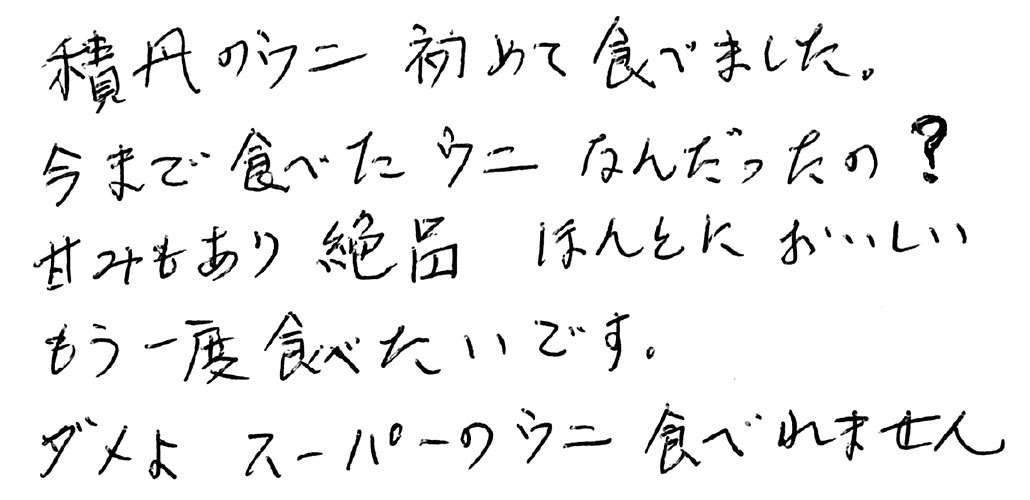 積丹のウニ 初めて食べました。
今まで食べたウニなんだったの？
甘みもあり絶品 ほんとにおいしい
もう一度食べたいです。
ダメよ スーパーのウニ食べれません